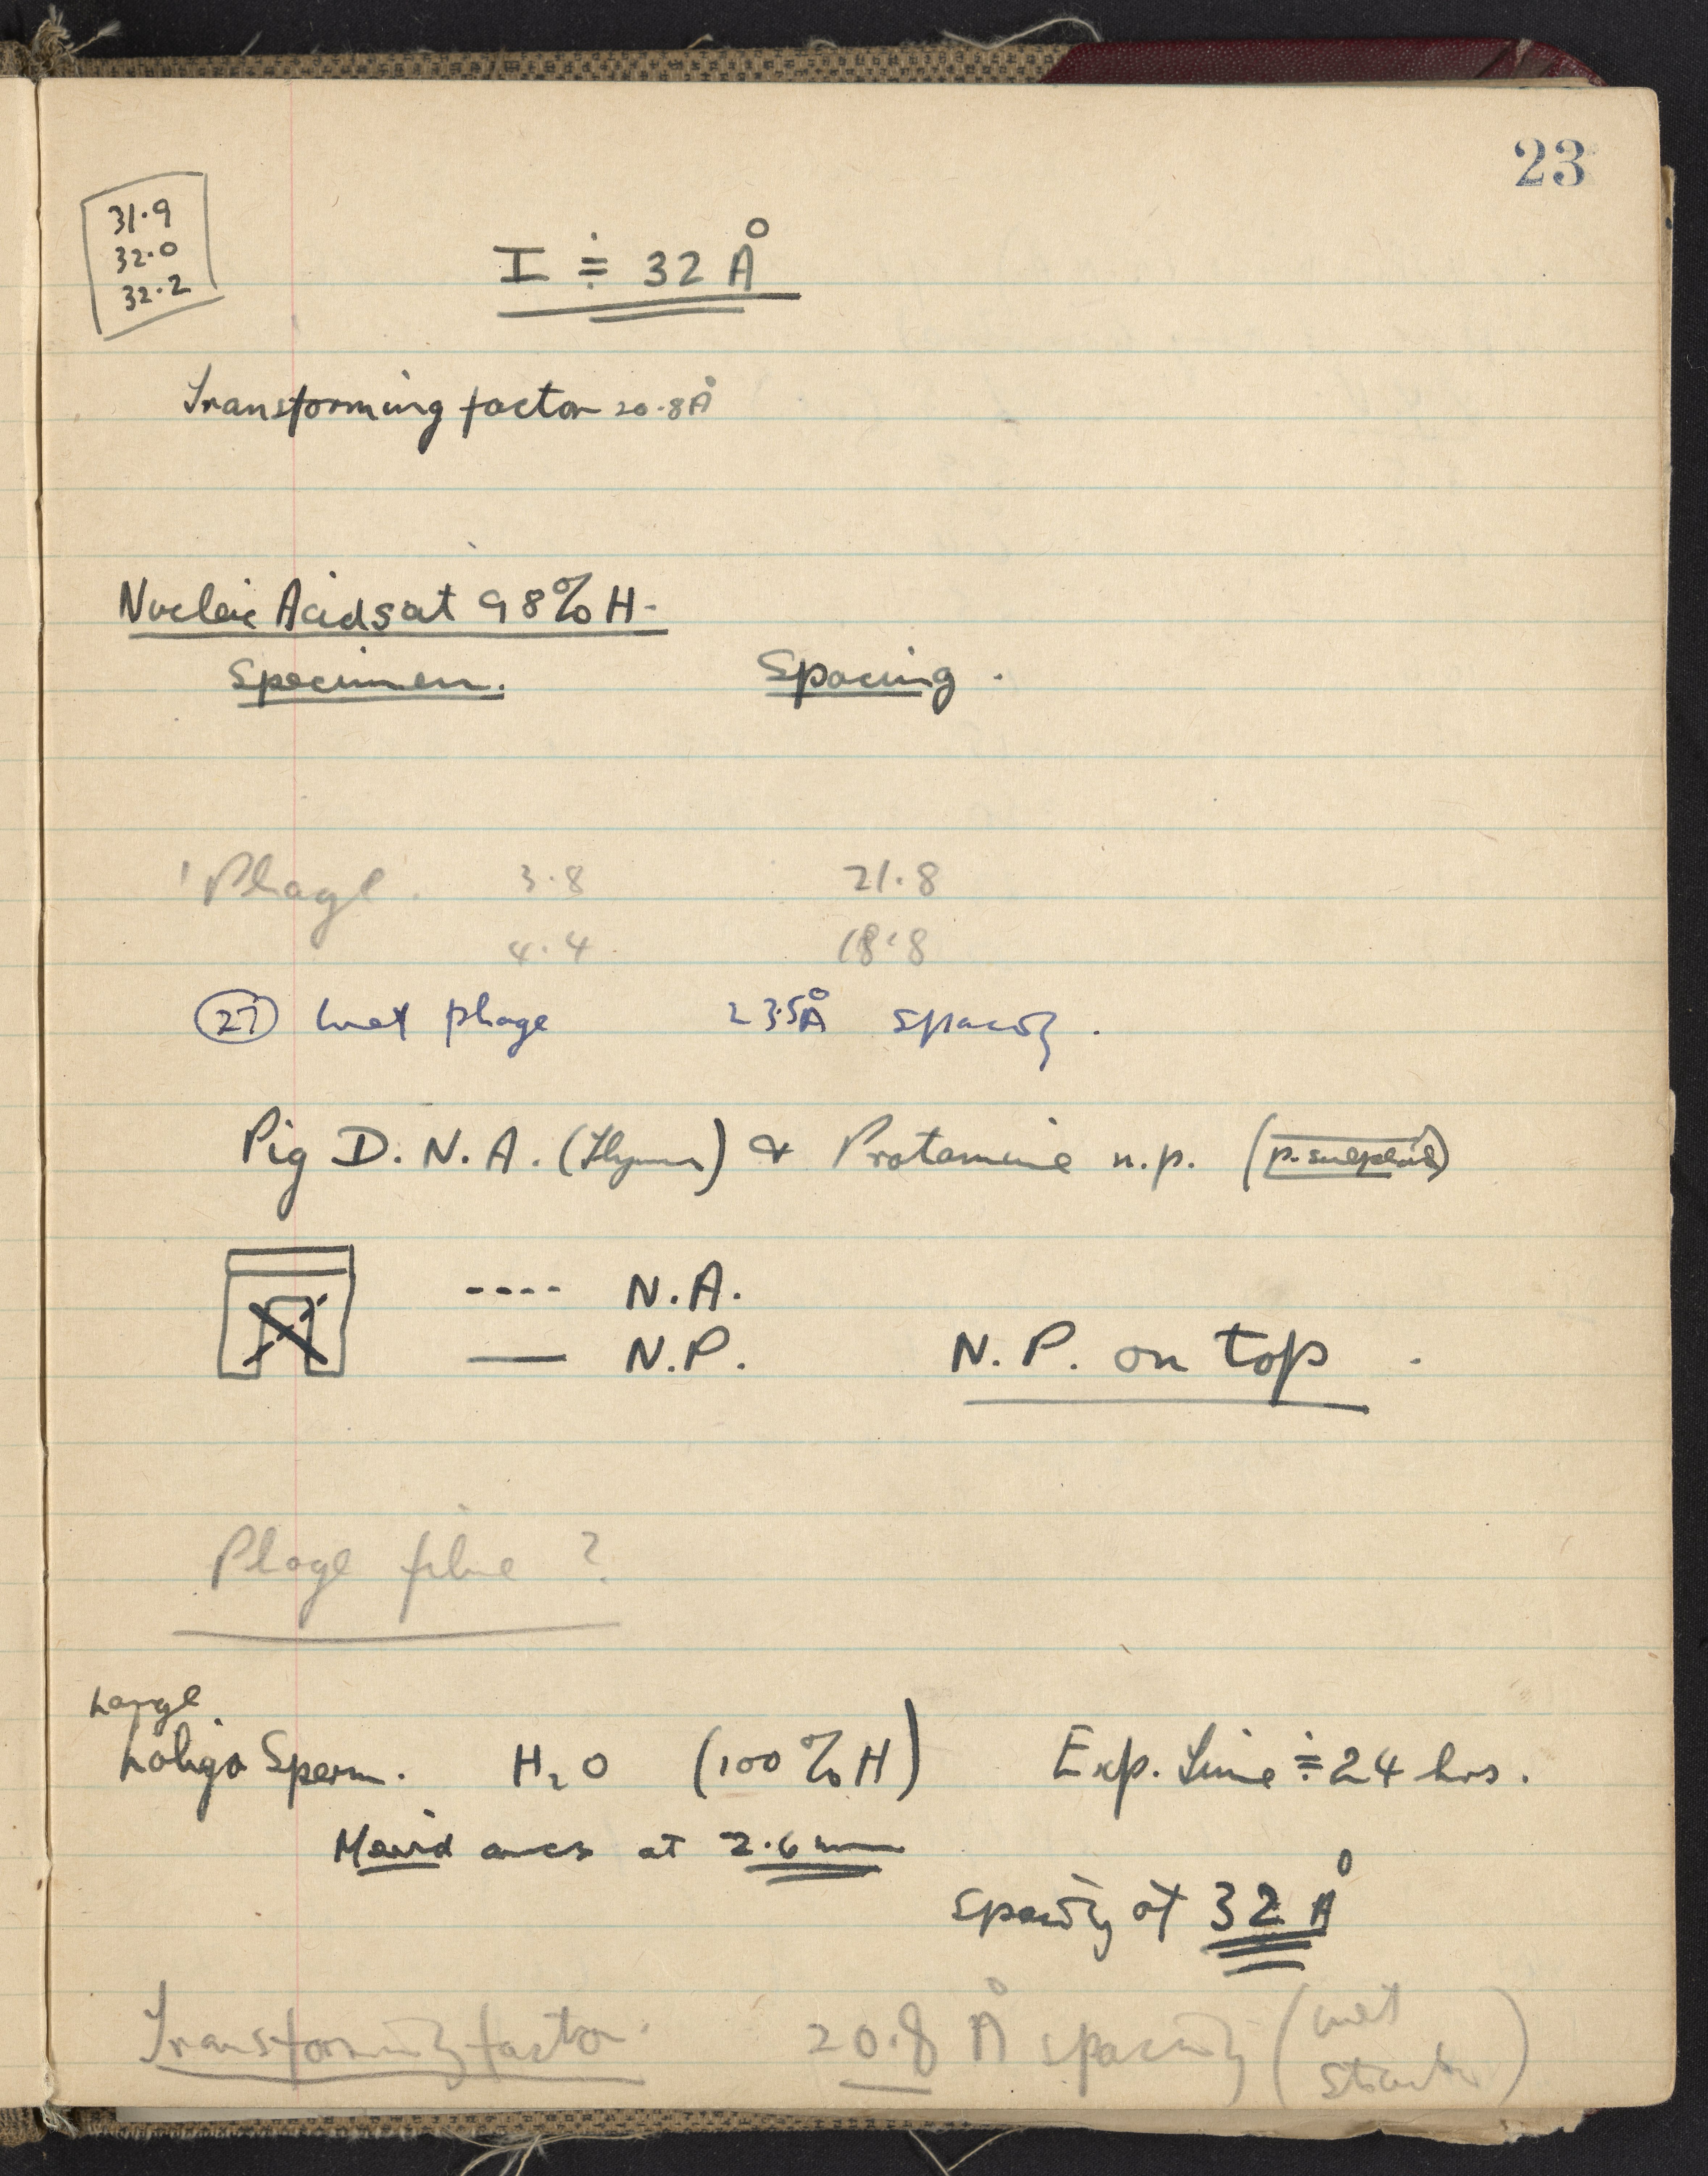 23
31.9
32.0
32.2
I ≑ 32 Å
Transforming factor 20.8Å
Nucleic Acids at 98% H.
Specimen. Spacing.
'Phage'. 3.8 21.8
4.4 18.8
(27) Wet phage 23.5Å spacing.
Pig D.N.A. (Thymus) & Protamine n.p. (
---- N.A.
— N.P. N.P. on top.
Phage fibre ?
Large
Loligo Sperm. H₂O (100% H) Exp. Time ≑ 24 hrs.
Merid arcs at 2.6 mm
Spacing at 32 Å
Transforming factor. 20.8 Å spacing (wet